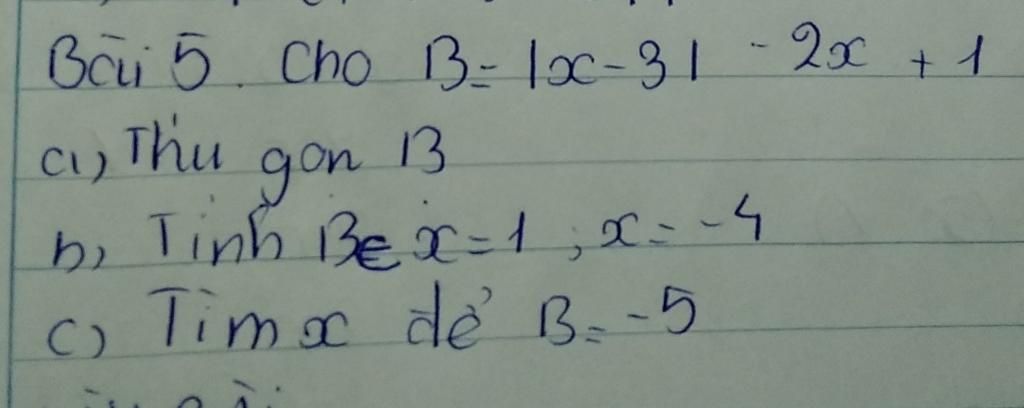 Bài 5. Cho B = |x - 3| - 2x + 1
a, Thu gọn B
b, Tính B x = 1 ; x = -4
c) Tìm x để B = -5